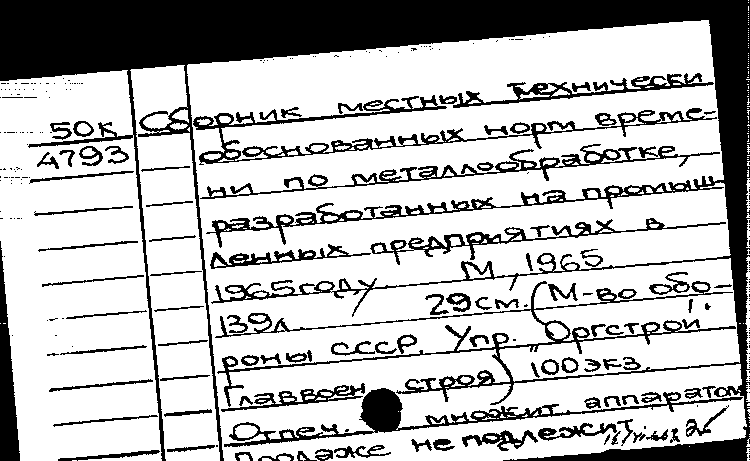 50к Сборник местных технически
4793 обоснованных норм време-
ни по металлообработке,
разработанных на промыш-
ленных предприятиях в
1965 году. М., 1965.
139л. 29см. (М-во обо-
роны СССР. Упр. „Оргстрой"
Главвоен строя) 100экз.
Отпеч. множит. аппаратом
Продаже не подлежит